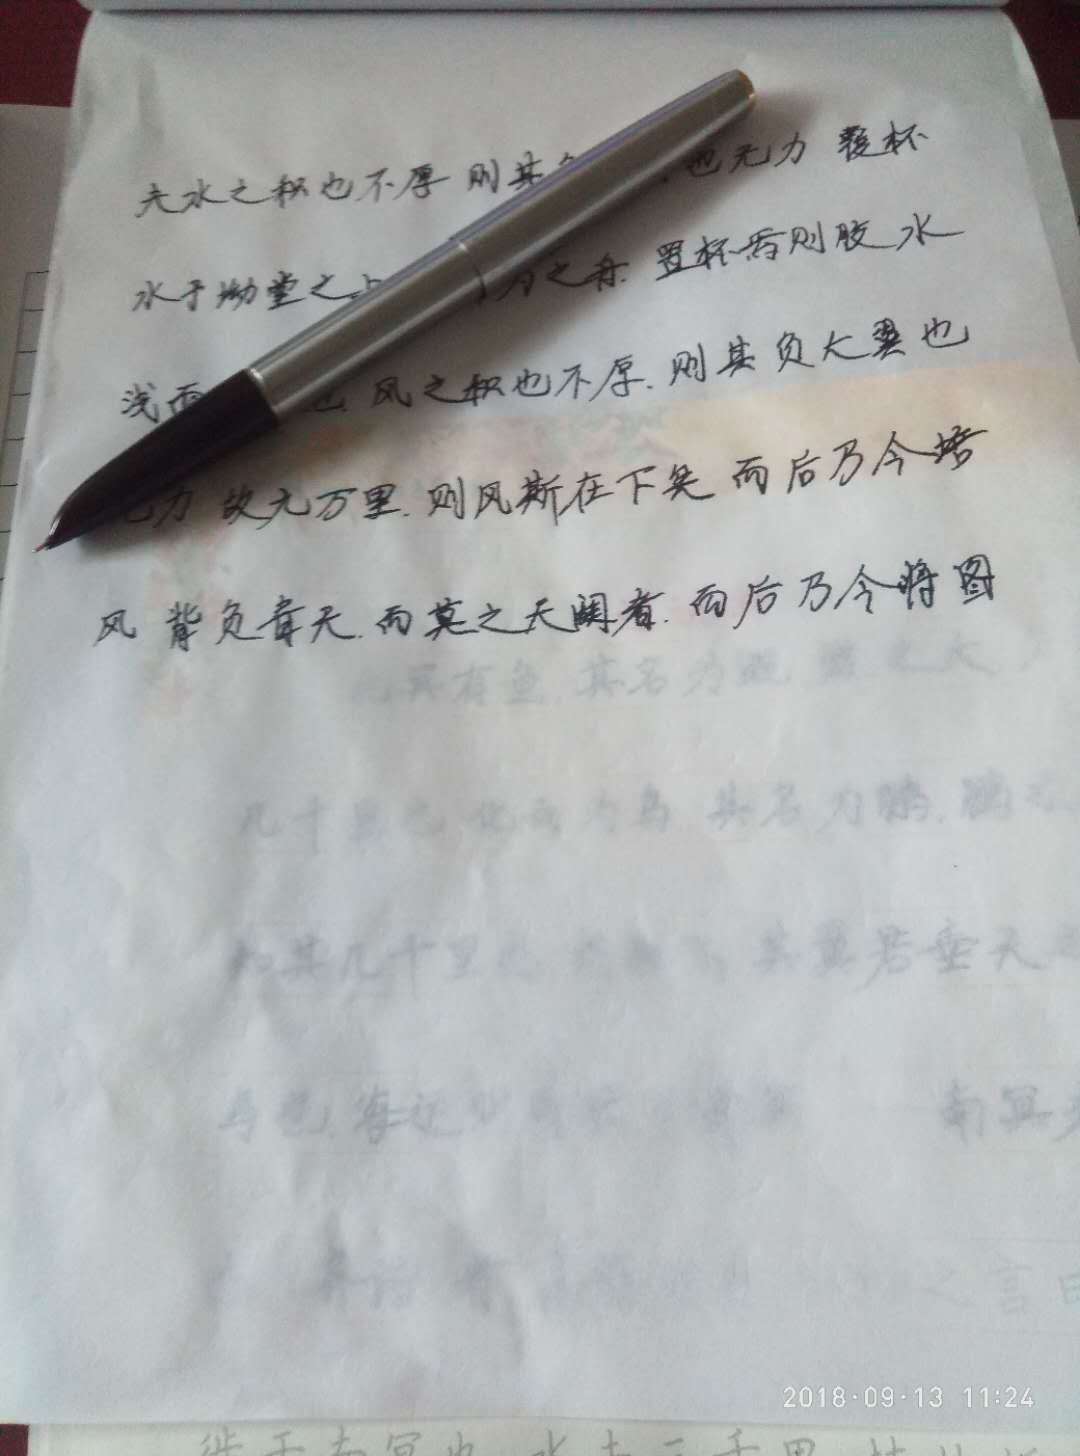 夫水之积也不厚 则其负 也无力 覆杯
水于坳堂之上 为之舟. 置杯焉则胶 水
浅而 也 风之积也不厚. 则其负大翼也
无力 故九万里. 则风斯在下矣 而后乃今培
风 背负青天. 而莫之夭阏者. 而后乃今将图
有鱼. 其名为鲲. 鲲之大
几千里也 化而为鸟 其名为鹏. 鹏之
知其几千里也 其翼若垂天之
鸟也. 海运则 南冥
之言曰
2018·09·13 11:24
徙于南冥也 水击三千里